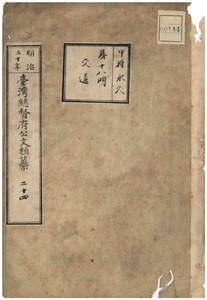 甲種永久
第十八門
交通
明治
三十年
臺灣總督府公文類纂
二十四